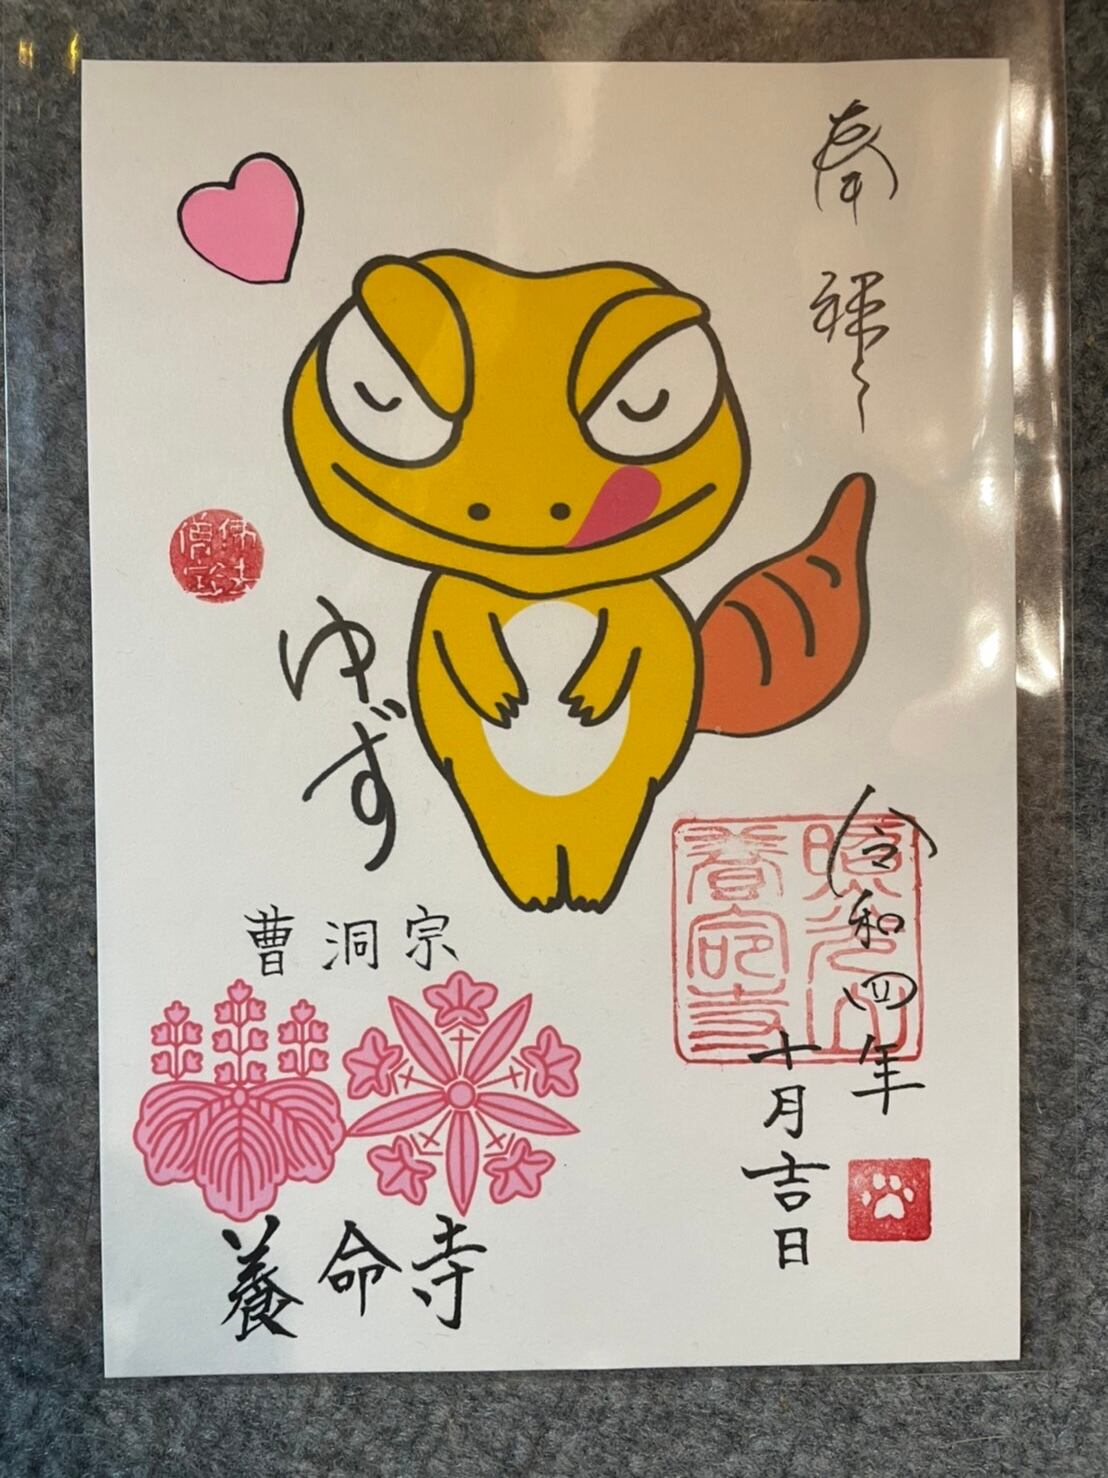 奉拝
令和四年
十月吉日
養命寺
佛法
僧宝
ゆず
曹洞宗
養命寺